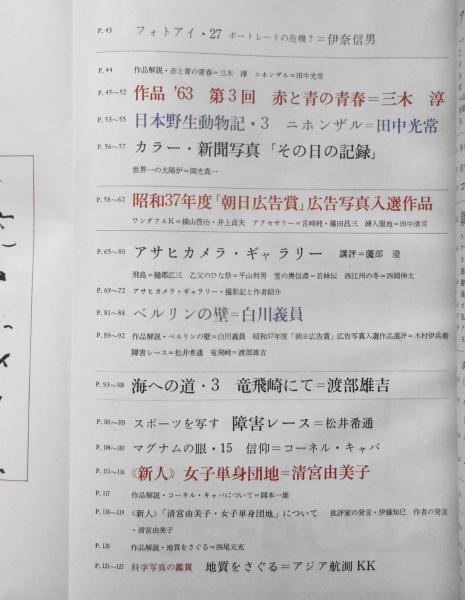 P. 43 フォトアイ・27 ポートレートの危機?=伊奈信男
P. 44 作品解説・赤と青の青春=三木 淳 ニホンザル=田中光常
P. 45~52 作品 '63 第3回 赤と青の青春=三木 淳
P. 53~55 日本野生動物記・3 ニホンザル=田中光常
P. 56~57 カラー・新聞写真「その日の記録」
世界一の太陽炉=関光真一
P. 58~62 昭和37年度「朝日広告賞」広告写真入選作品
ワンダフルK=横山啓治・井上貞夫 アクセサリー=宮崎純・篠田昌三 婦人服地=田中清司
P. 65~80 アサヒカメラ・ギャラリー 講評=薗部 澄
飛島=樋郡広三 乙父のひな祭=平山利男 雪の奥信濃=若林伝 西江州の冬=西岡伸太
P. 69~72 アサヒカメラ・ギャラリー・撮影記と作者紹介
P. 81~88 ベルリンの壁=白川義員
P. 89~92 作品解説・ベルリンの壁=白川義員 昭和37年度「朝日広告賞」広告写真入選作品選評=木村伊兵衛
障害レース=松井希通 竜飛崎=渡部雄吉
P. 93~100 海への道・3 竜飛崎にて=渡部雄吉
P. 101~103 スポーツを写す 障害レース=松井希通
P. 104~107 マグナムの眼・15 信仰=コーネル・キャパ
P. 113~116 《新人》女子単身団地=清宮由美子
P. 117 作品解説・コーネル・キャパについて=岡本一雄
P. 118~119 《新人》「清宮由美子・女子単身団地」について 批評家の発言・伊藤知巳 作者の発言
・清宮由美子
P. 120 作品解説・地質をさぐる=西尾元充
P. 121~122 科学写真の鑑賞 地質をさぐる=アジア航測KK